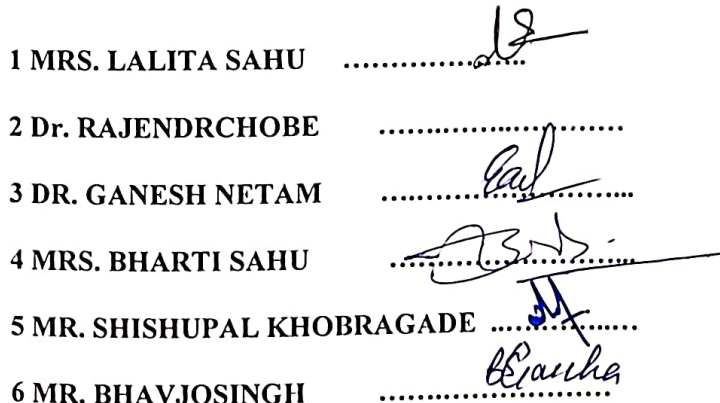 1 MRS. LALITA SAHU ....................
2 Dr. RAJENDRCHOBE ...........................
3 DR. GANESH NETAM ............................
4 MRS. BHARTI SAHU ...........................
5 MR. SHISHUPAL KHOBRAGADE ................
6 MR. BHAVJOSINGH .........................